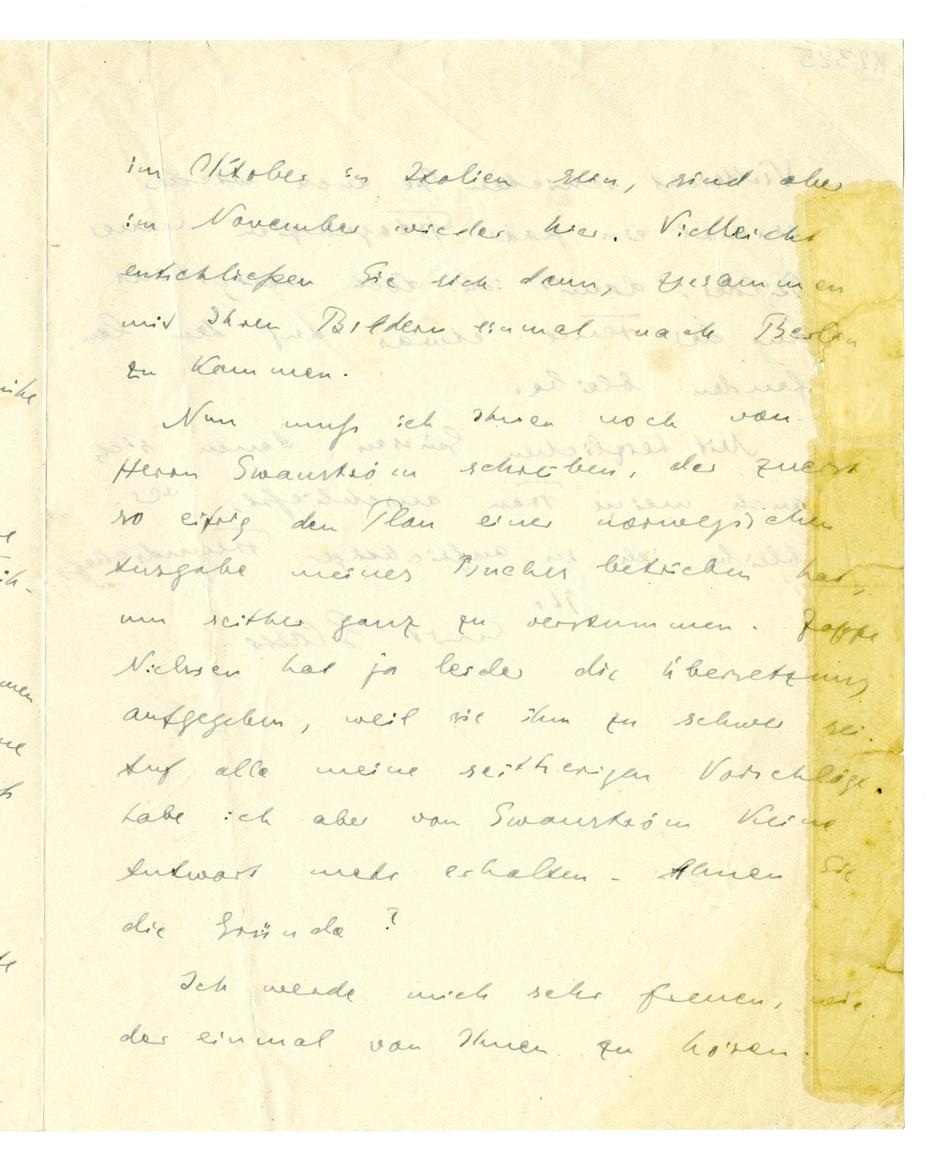 im Oktober in Italien sein, sind aber
im November wieder hier. Vielleicht
entschließen Sie sich dann, zusammen
mit Ihren Bildern einmal nach Berlin
zu kommen.
Nun muß ich Ihnen noch von
Herrn Swanström schreiben, der zuerst
so eifrig den Plan einer norwegischen
Ausgabe meines Buches betrieben hat,
um seither ganz zu verstummen. Jappe
Nielssen hat ja leider die Übersetzung
aufgegeben, weil sie ihm zu schwer sei.
Auf alle meine seitherigen Vorschläge
habe ich aber von Swanström keine
Antwort mehr erhalten – Ahnen Sie
die Gründe?
Ich werde mich sehr freuen, wie
der einmal von Ihnen zu hören.